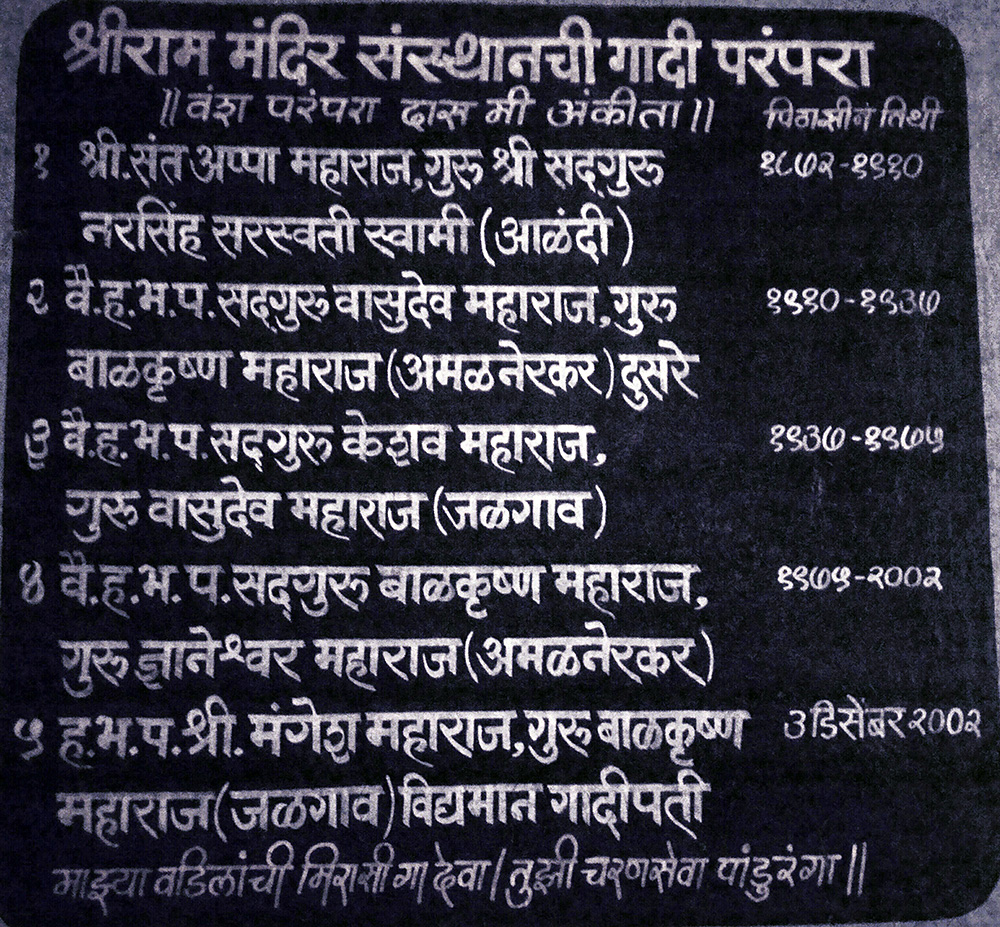 श्रीराम मंदिर संस्थानची गादी परंपरा
॥ वंश परंपरा दास मी अंकीता ॥ पिठासीन तिथी
१ श्री.संत अप्पा महाराज,गुरू श्री सद्गुरू १८७२-१९१०
नरसिंह सरस्वती स्वामी (आळंदी)
२ वै.ह.भ.प.सद्गुरू वासुदेव महाराज,गुरू १९१०-१९३७
बाळकृष्ण महाराज (अमळनेरकर) दुसरे
३ वै.ह.भ.प.सद्गुरू केशव महाराज, १९३७-१९७५
गुरू वासुदेव महाराज (जळगाव)
४ वै.ह.भ.प.सद्गुरू बाळकृष्ण महाराज, १९७५-२००२
गुरू ज्ञानेश्वर महाराज (अमळनेरकर)
५ ह.भ.प.श्री.मंगेश महाराज,गुरू बाळकृष्ण ३ डिसेंबर २००२
महाराज (जळगाव) विद्यमान गादीपती
माझ्या वडिलांची मिरासी गा देवा / तुझी चरणसेवा पांडुरंगा ॥